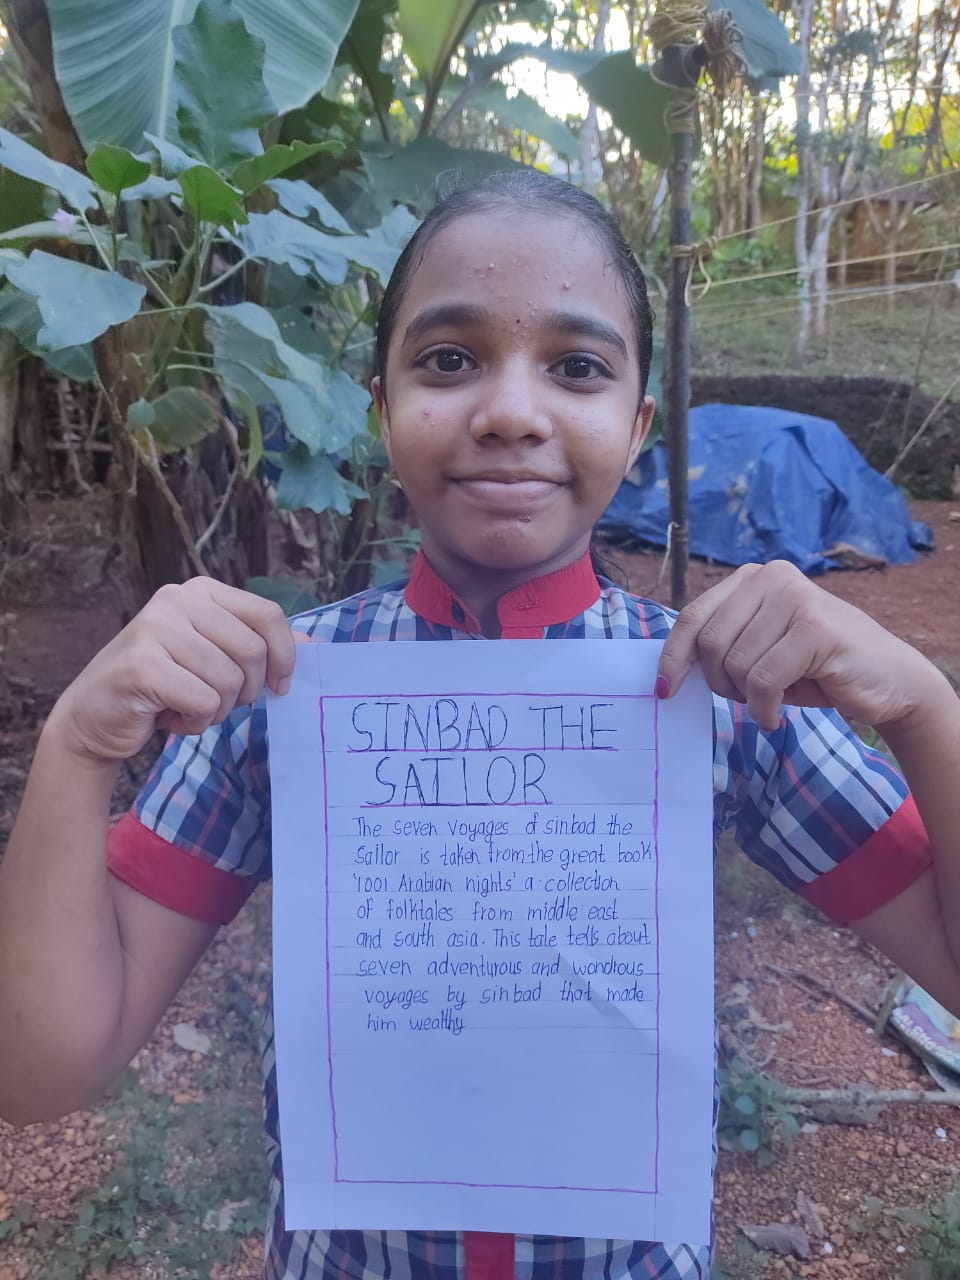 SINBAD THE
SAILOR
The seven voyages of sinbad the
Sailor is taken from the great book
'1001 Arabian nights' a collection
of folktales from middle east
and south asia. This tale tells about
seven adventurous and wondrous
voyages by sinbad that made
him wealthy